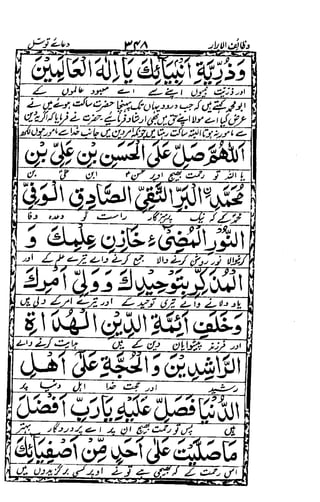 وظائف الابرار ۳۴۸ دعائے توسل
وَذُرِّيَّةِ اَنْبِيَآئِكَ يَآ اِلٰهَ الْعَالَمِيْنَ
اور ذریت نبیوں اپنے سے اے معبود عالموں کے
ابو محمد کہتے ہیں کہ جب درود یہاں تک پہنچا حضرت ساکت ہوئے میں نے
عرض کیا اے مولا اپنے حق میں بھی ارشاد فرمایئے حضرت نے فرمایا کہ اگر یہ دین
سے مامور نہ ہوتا البتہ ساکت رہتا میں چونکہ امر دین میں جانب خدا سے مامور ہوں لکھ
اَللّٰهُمَّ صَلِّ عَلَى الْحَسَنِ بْنِ عَلِيِّ بْنِ
یا اللہ تو رحمت بھیج اوپر حسن ابن علی بن
مُحَمَّدِ ۣالْبَرِّ التَّقِيِّ الصَّادِقِ الْوَفِيِّ
محمد کے کہ نیک پرہیزگار راست گو وعدہ وفا
النُّوْرِ الْمُضِيْٓءِ خَازِنِ عِلْمِكَ وَ
کرنیوالا نور روشن کرنے والا جمع کرنے والے تیرے علم کے اور
الْمُذَكِّرِ بِتَوْحِيْدِكَ وَوَلِيِّ اَمْرِكَ
یاد دلانے والے تیری توحید کے اور تیرے امر کے ولی ہیں
وَخَلَفِ اَئِمَّةِ الدِّيْنِ الْهُدَاةِ
اور فرزند پیشوایان دین کے ہیں ہدایت کرنے والے
الرَّاشِدِيْنَ وَالْحُجَّةِ عَلٰى اَهْلِ
رشید اور حجت خدا اہل دنیا پر
الدُّنْيَا فَصَلِّ عَلَيْهِ يَارَبِّ اَفْضَلَ
ہیں پس تو رحمت بھیج ان پر اے پروردگار بہتر
مَا صَلَّيْتَ عَلٰٓى اَحَدٍ مِّنْ اَصْفِيَآئِكَ
اس رحمت کے کہ بھیجی ہے تو نے اوپر کسی برگزیدوں میں